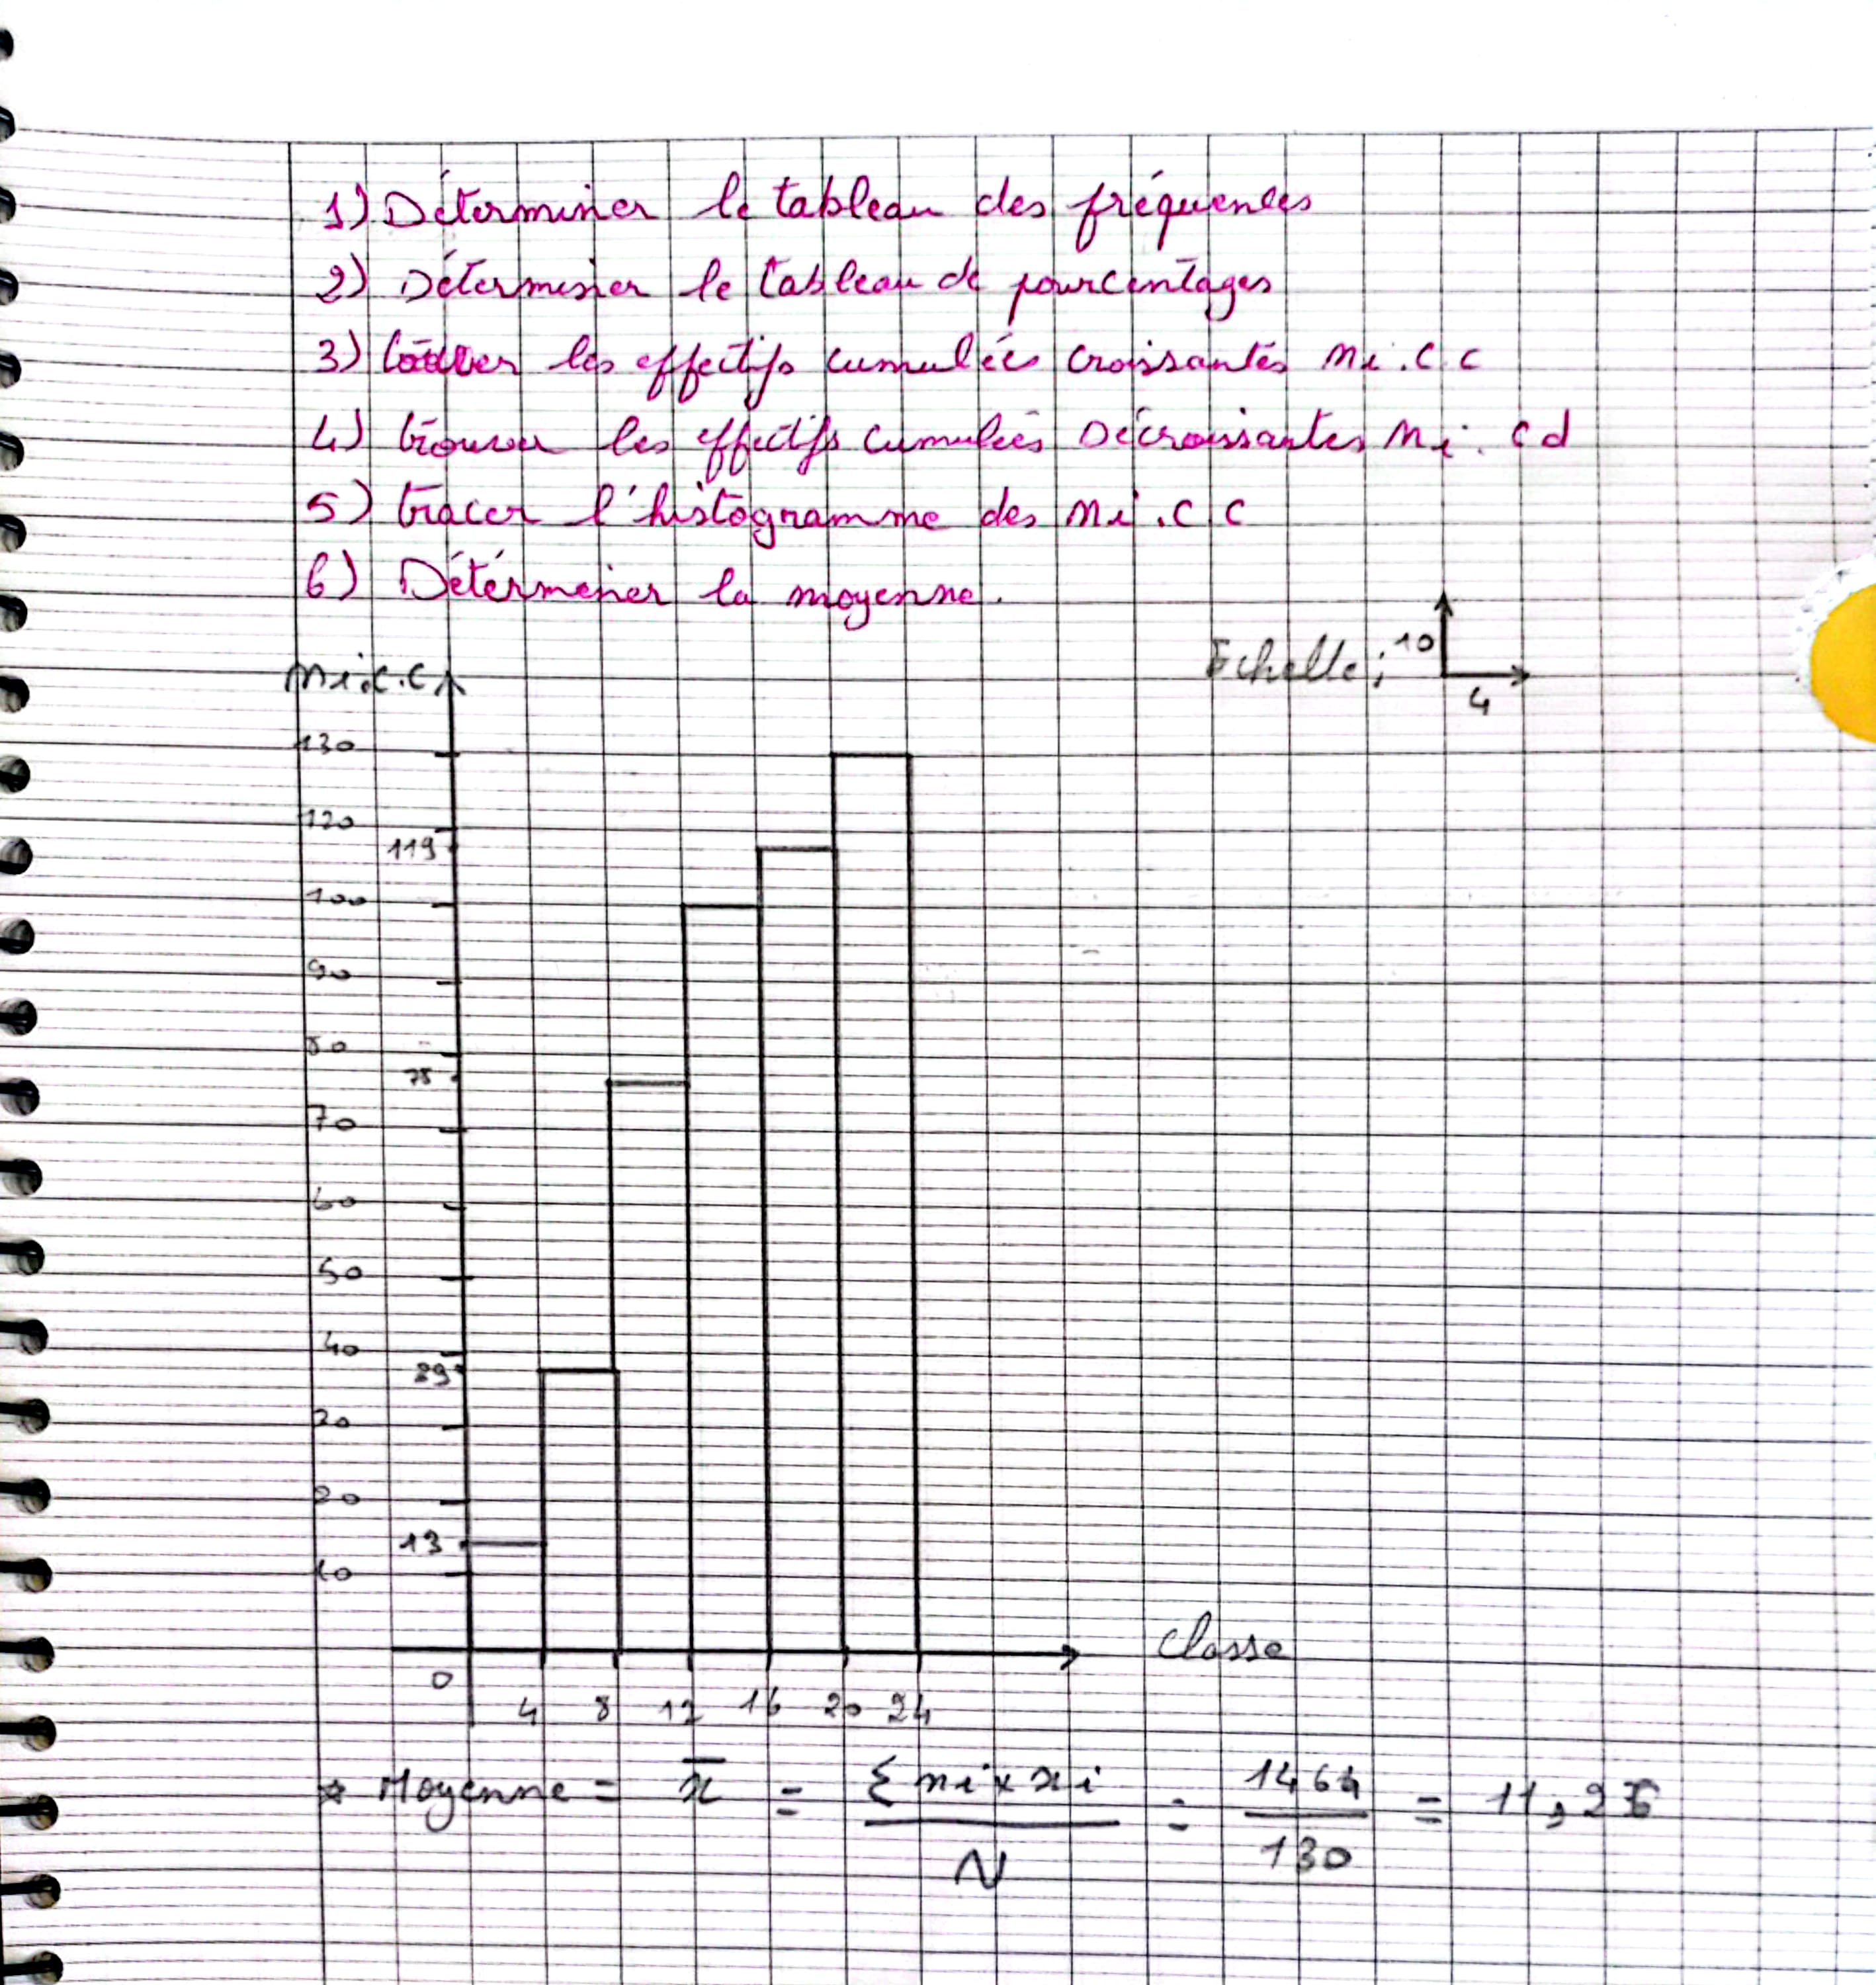 1) Déterminer le tableau des fréquences
2) Déterminer le tableau de pourcentages
3) les effectifs cumulées croissantes ni.c c
4) trouver les effectifs cumulées Décroissantes ni. c d
5) tracer l'histogramme des ni.c c
6) Détérmener la moyenne.
Echelle; 10
4
ni.c.c
130
120
119
100
90
80
75
70
60
50
40
39
20
20
13
10
0 4 8 12 16 20 24
classe
* Moyenne = x̄ = Σ ni x xi / N = 1464 / 130 = 11,26